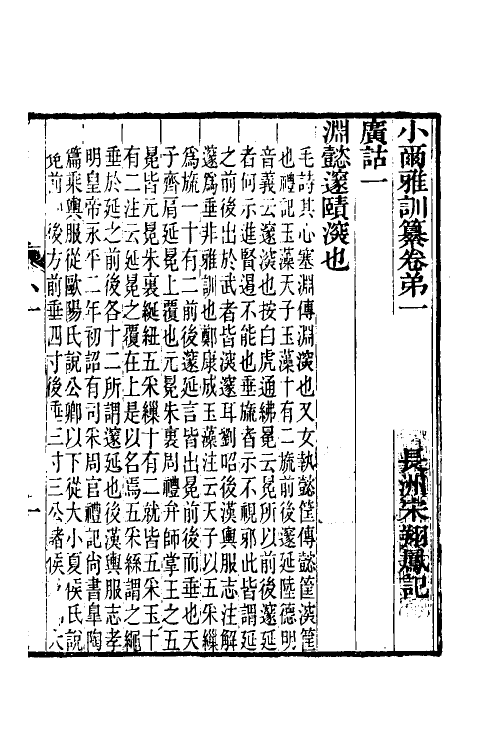 小爾雅訓纂卷弟一
長洲宋翔鳳記
廣詁一
淵懿邃賾深也
毛詩其心塞淵傳淵深也又女執懿筐傳懿筐深筐
也禮記玉藻天子玉藻十有二旒前後邃延陸德明
音義云邃深也按白虎通紼冕云冕所以前後邃延
者何示進賢退不能也垂旒者示不視邪此皆謂延
之前後出於武者皆深邃耳劉昭後漢輿服志注解
邃爲垂非雅訓也鄭康成玉藻注云天子以五采繅
爲旒一十有二前後邃延言皆出冕前後而垂也天
子齊肩延冕上覆也元冕朱裏周禮弁師掌王之五
冕皆元冕朱裏延紐五采繅十有二就皆五采玉十
有二注云延冕之覆在上是以名焉五采絲謂之繩
垂於延之前後各十二所謂邃延也後漢輿服志孝
明皇帝永平二年初詔有司采周官禮記尚書皋陶
篇乘輿服從歐陽氏說公卿以下從大小夏侯氏說
前後方前垂四寸後垂三寸三公諸侯